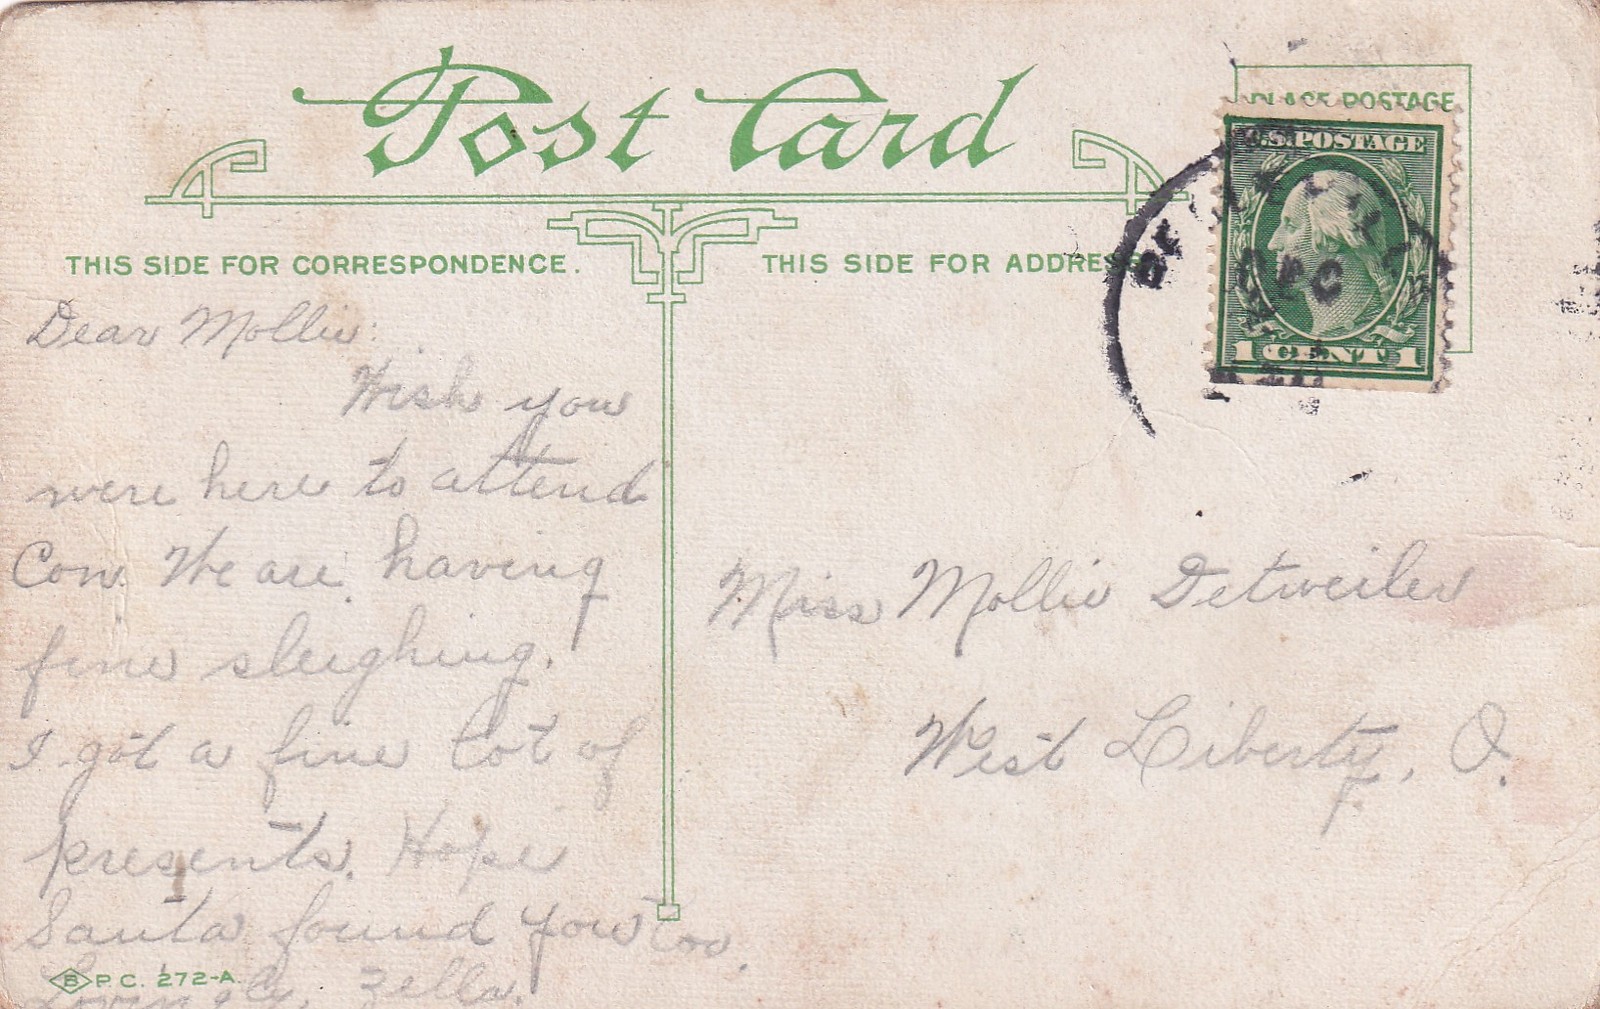 Post Card
PLACE POSTAGE
U.S. POSTAGE
1 CENT 1
DEC
THIS SIDE FOR CORRESPONDENCE.
THIS SIDE FOR ADDRESS
Dear Mollie:
Wish you
were here to attend
Con. We are having
fine sleighing.
I got a fine lot of
presents. Hope
Santa found you too.
Lovingly, Zella.
B P.C. 272-A
Miss Mollie Detweiler
West Liberty, O.